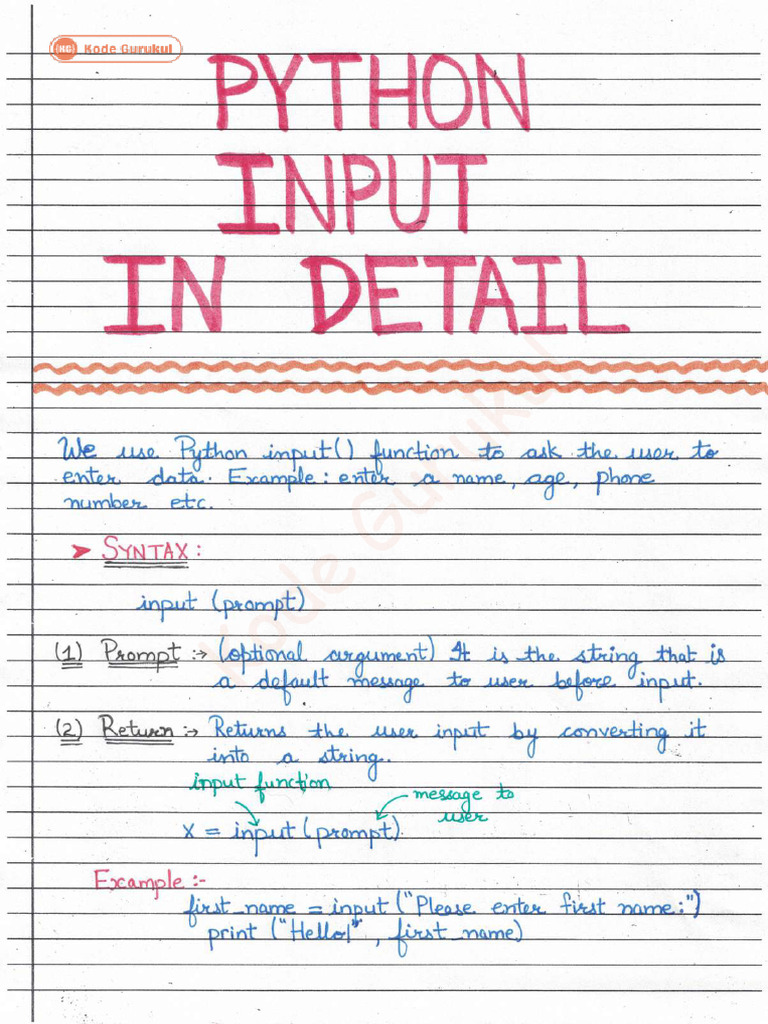 Kode Gurukul
PYTHON
INPUT
IN DETAIL
We use Python input() function to ask the user to
enter data. Example: enter a name, age, phone
number etc.
➤ SYNTAX:
input (prompt)
(1) Prompt :→ (optional argument) It is the string that is
a default message to user before input.
(2) Return :→ Returns the user input by converting it
into a string.
input function
message to
user
x = input (prompt).
Example :-
first_name = input ("Please enter first name:")
print ("Hello!" , first_name)
Kode Gurukul